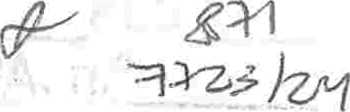 871
7723/24